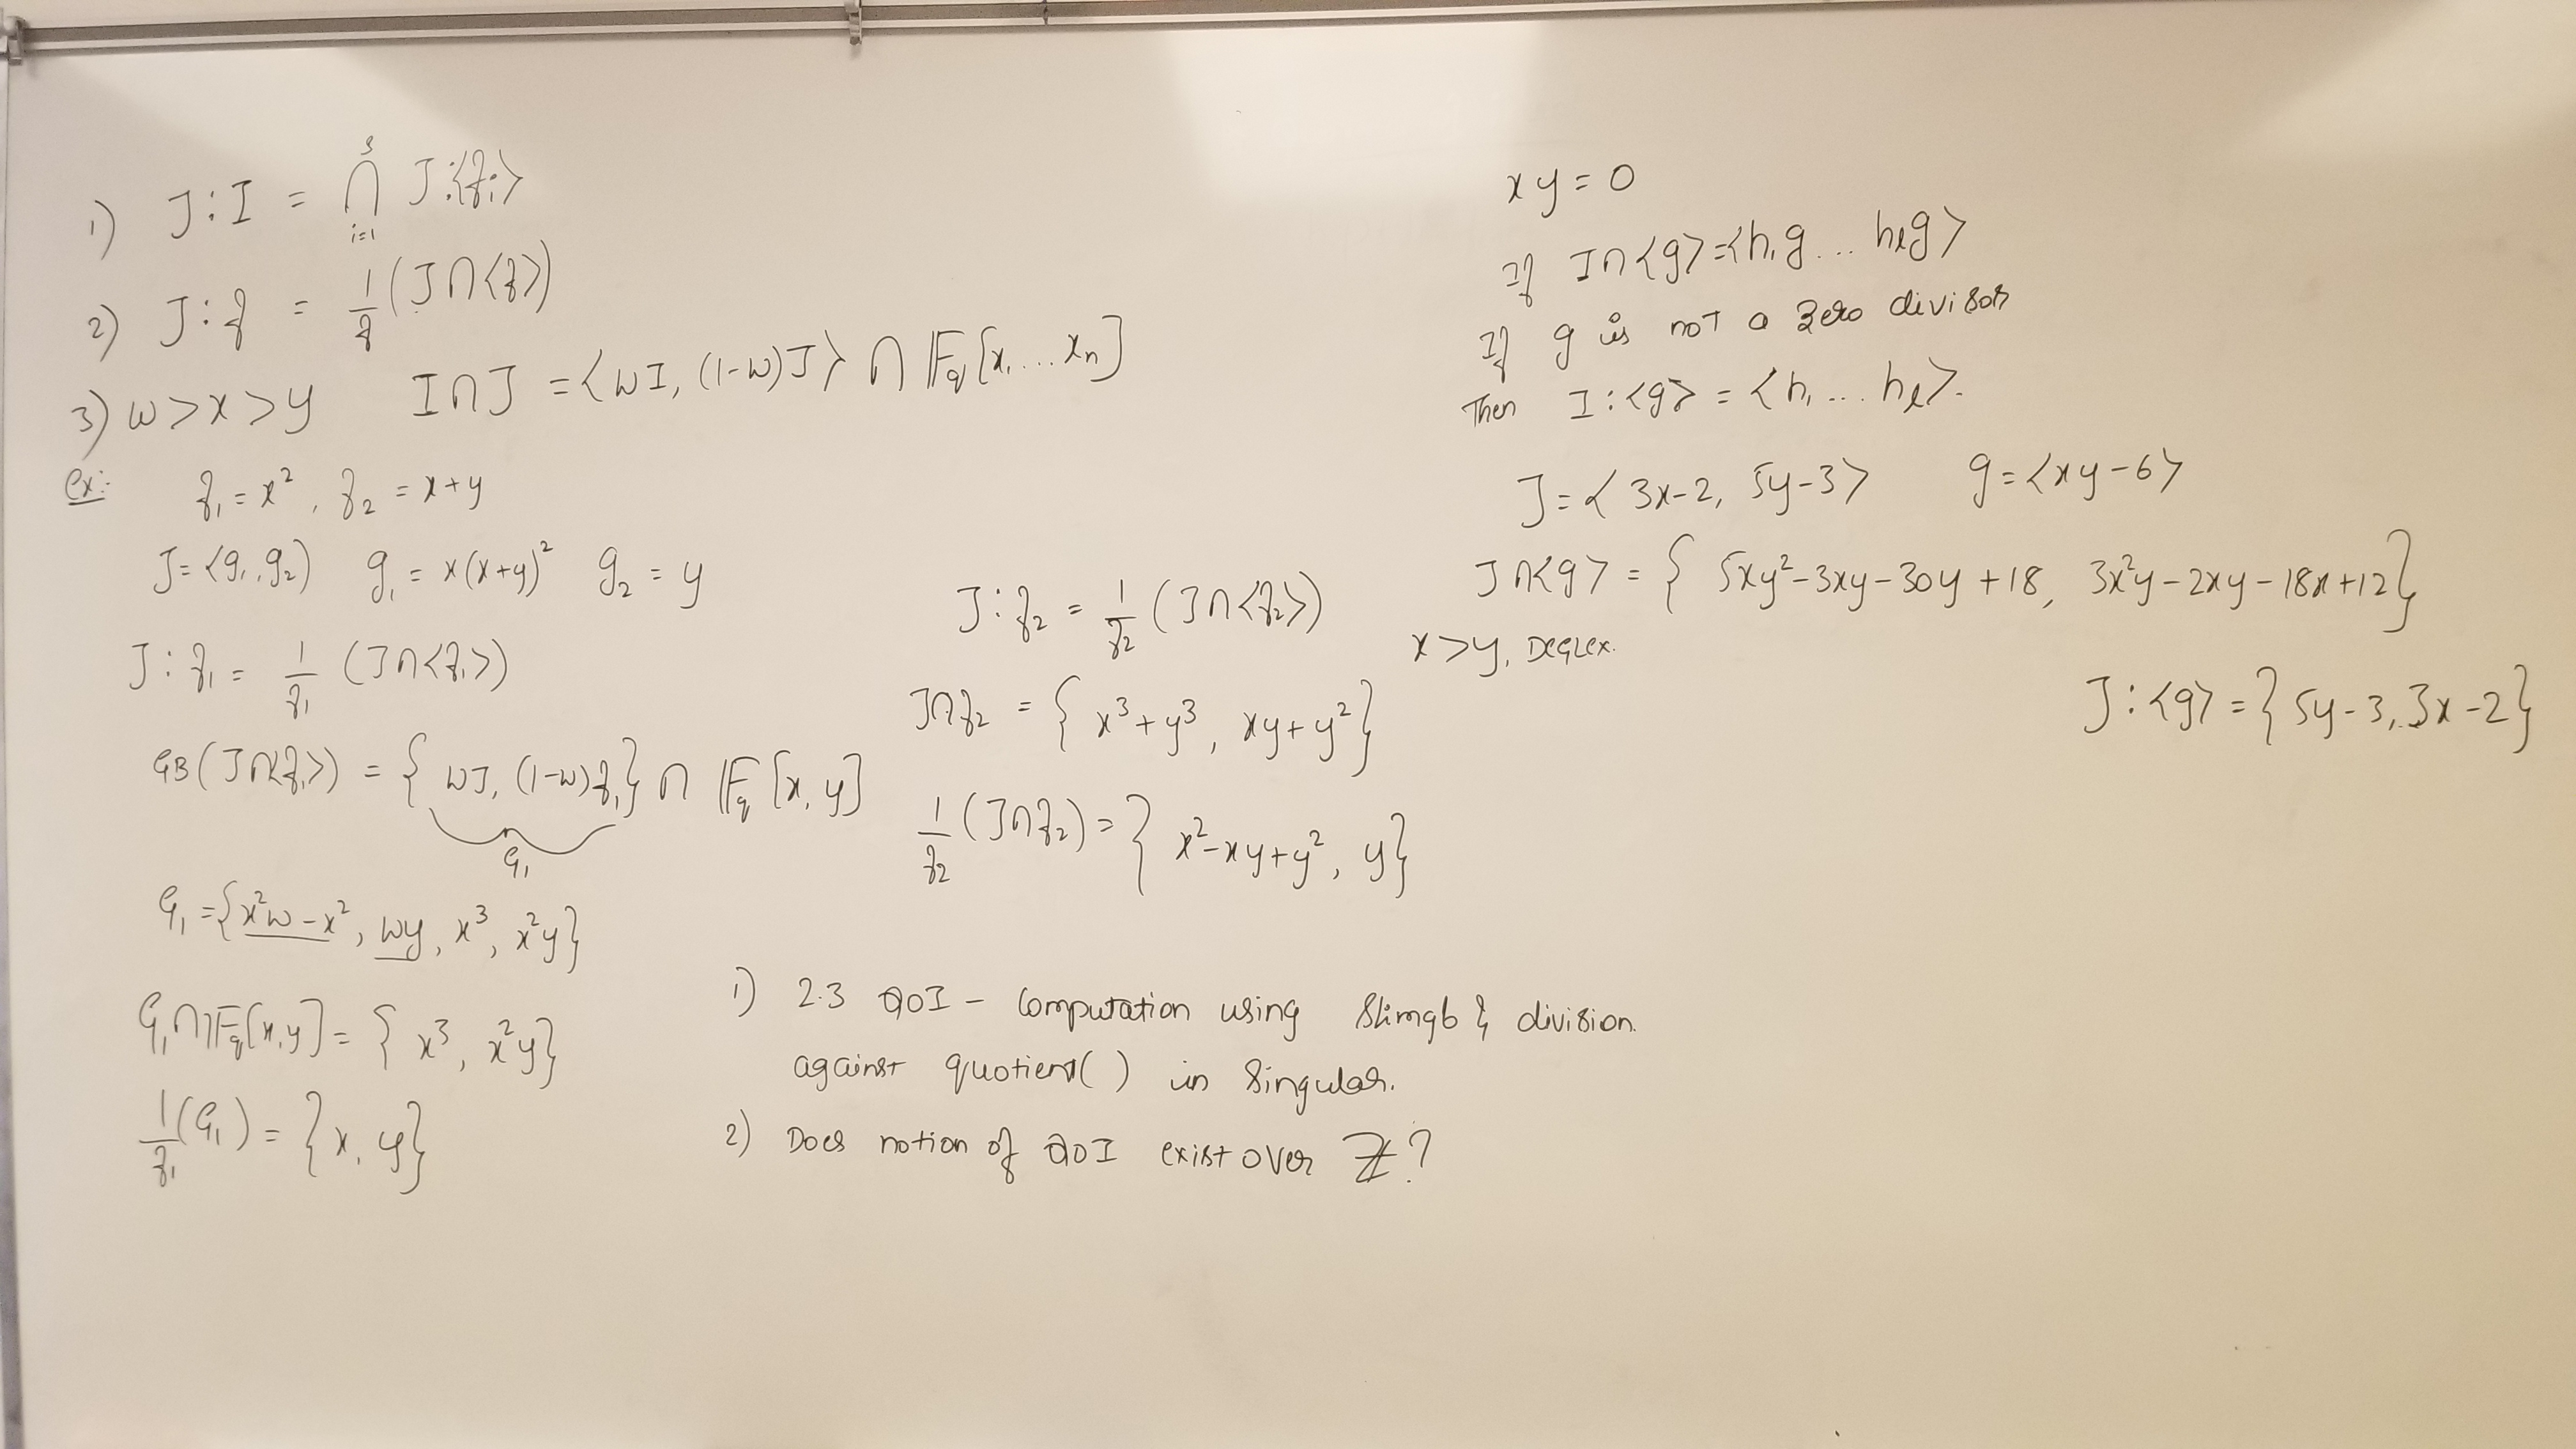 1) J:I = ⋂_{i=1}^{s} J:⟨f_i⟩
2) J:f = 1/f (J∩⟨f⟩)
3) w>x>y I∩J = ⟨wI, (1-w)J⟩ ∩ 𝔽_q[x_1...x_n]
Ex:- f_1 = x², f_2 = x+y
J=⟨g_1,g_2⟩ g_1 = x(x+y)² g_2 = y
J:f_1 = 1/f_1 (J∩⟨f_1⟩)
GB(J∩⟨f_1⟩) = {wJ, (1-w)f_1} ∩ 𝔽_q[x,y]
G_1
G_1 = {x²w-x², wy, x³, x²y}
G_1∩𝔽_q[x,y] = {x³, x²y}
1/f_1 (G_1) = {x, y}
J:f_2 = 1/f_2 (J∩⟨f_2⟩)
J∩f_2 = {x³+y³, xy+y²}
1/f_2 (J∩f_2) = {x²-xy+y², y}
1) 2.3 QoI - Computation using Slimgb & division
against quotient( ) in Singular.
2) Does notion of QoI exist over ℤ?
xy=0
If I∩⟨g⟩=⟨h_1g...h_lg⟩
If g is not a zero divisor
Then I:⟨g⟩ = ⟨h_1...h_l⟩.
J=⟨3x-2, 5y-3⟩ g=⟨xy-6⟩
J∩⟨g⟩ = {5xy²-3xy-30y+18, 3x²y-2xy-18x+12}
x>y, DEGLEX.
J:⟨g⟩ = {5y-3, 3x-2}